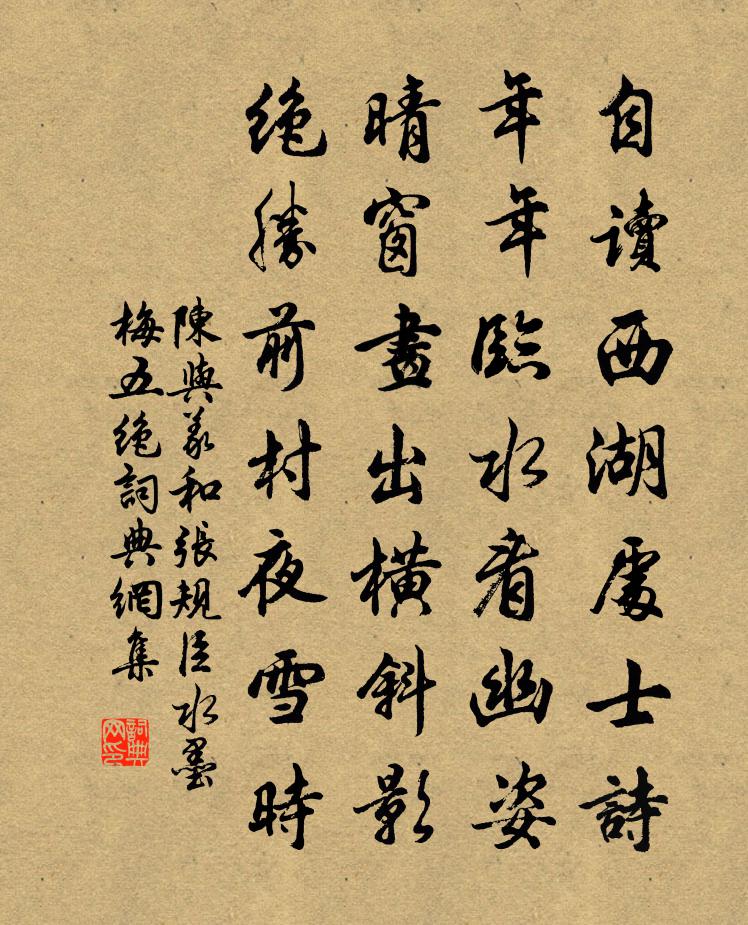 自讀西湖處士詩
年年臨水看幽姿
晴窗畫出橫斜影
絕勝前村夜雪時
陳與義和張規臣水墨
梅五絕詞典網集
詞典
网印